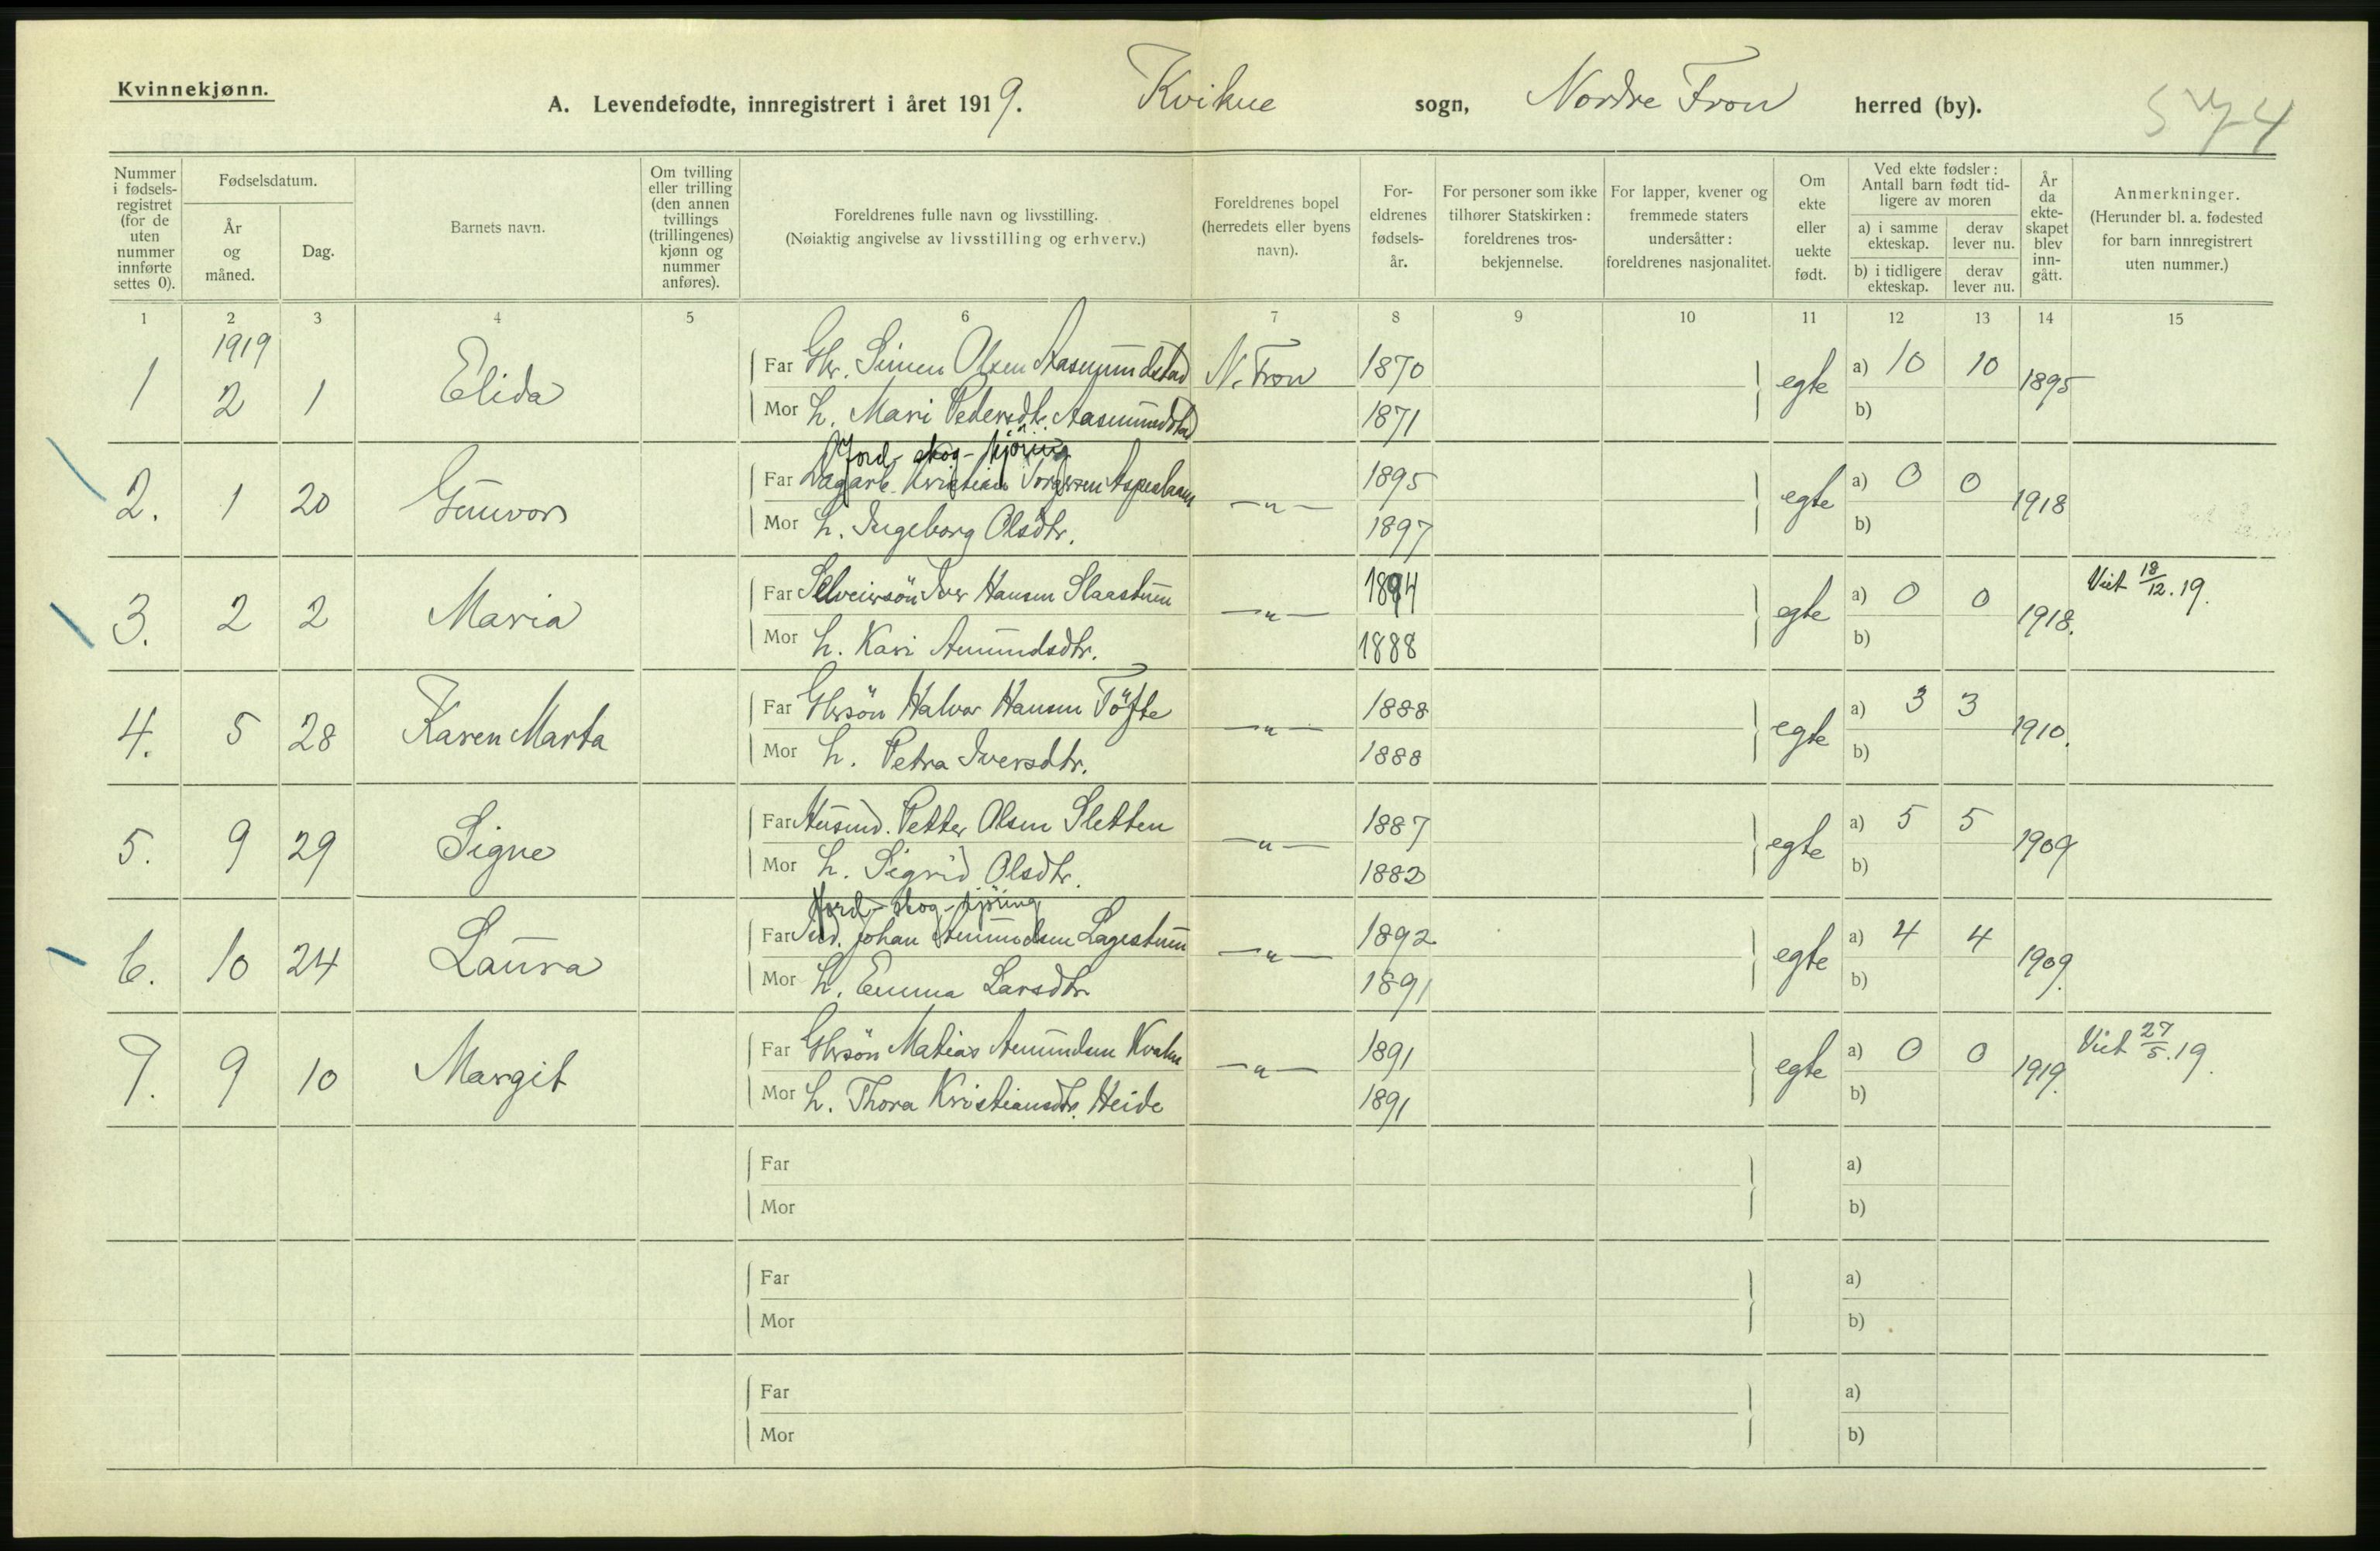 Kvinnekjønn.
A. Levendefødte, innregistrert i året 1919. Kvikne sogn, Nordre Fron herred (by).
Nummer i fødsels-registret (for de uten nummer innførte settes 0).
Fødselsdatum.
År og måned.
Dag.
Barnets navn.
Om tvilling eller trilling (den annen tvillings (trillingenes) kjønn og nummer anføres).
Foreldrenes fulle navn og livsstilling.
(Nøiaktig angivelse av livsstilling og erhverv.)
Foreldrenes bopel (herredets eller byens navn).
For-eldrenes fødsels-år.
For personer som ikke tilhører Statskirken: foreldrenes tros-bekjennelse.
For lapper, kvener og fremmede staters undersåtter: foreldrenes nasjonalitet.
Om ekte eller uekte født.
Ved ekte fødsler: Antall barn født tid-ligere av moren
a) i samme ekteskap. derav lever nu.
b) i tidligere ekteskap. derav lever nu.
År da ekte-skapet blev inn-gått.
Anmerkninger.
(Herunder bl. a. fødested for barn innregistrert uten nummer.)
1 2 3 4 5 6 7 8 9 10 11 12 13 14 15
1919
1 2 1 Elida Far Gbr. Simen Olsen Aasmundstad N. Fron 1870 egte a) 10 10 1895
Mor h. Mari Pedersdtr. Aasmundstad 1871 b)
Jord- skog- kjöring
2. 1 20 Gunvor Far Dagarb. Kristian Torgersen -"- 1895 egte a) 0 0 1918
Mor h. Ingeborg Olsdtr. 1897 b)
3. 2 2 Maria Far Selveiersön Iver Hansen Slaastuen -"- 1894 egte a) 0 0 1918. Viet 18/12.19.
Mor h. Kari Amundsdtr. 1888 b)
4. 5 28 Karen Marta Far Gbrsön Halvor Hansen Töfte -"- 1888 egte a) 3 3 1910.
Mor h. Petra Iversdtr. 1888 b)
5. 9 29 Signe Far Husmd. Petter Olsen Sletten -"- 1887 egte a) 5 5 1909
Mor h. Sigrid Olsdtr. 1883 b)
Jord- skog- kjöring
6. 10 24 Laura Far Johan Amundsen Lagestuen -"- 1892 egte a) 4 4 1909.
Mor h. Emma Larsdtr. 1891 b)
7. 9 10 Margit Far Gbrsön Matias Amundsen Kvalen -"- 1891 egte a) 0 0 1919. Viet 27/5.19.
Mor h. Thora Kristiansdtr. Heide 1891 b)
Far a)
Mor b)
Far a)
Mor b)
Far a)
Mor b)